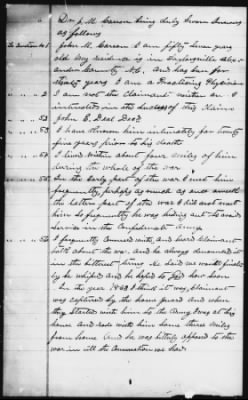 Dr. J. M. Carson being duly sworn deposes
as follows
To Question No 1 John M. Carson I am fifty seven years
old my residence is in Taylorsville Alex-
ander County N.C. and has been for
thirty years I am a Practicing Physician
2 I am not the claimant neither am I
interested in the success of this Claim
52 John E. Deal Decd
53 I have known him intimately for twenty
five years prior to his death
54 I lived within about four miles of him
during the whole of the war.
55 In the early part of the war I met him
frequently, perhaps as much as once a week
the latter part of the war I did not meet
him so frequently he was hiding out to avoid
service in the Confederate Army
56 I frequently conversed with, and heard claimant
talk about the war, and he always denounced it
in the bitterest terms. He said we would finally
be whiped and he hoped to God how soon
In the year 1863 I think it was, Claimant
was captured by the home guard and when
they started with him to the Army I was at his
house and rode with him some three miles
from home and he was bitterly opposed to the
war in all the Conversation we had.